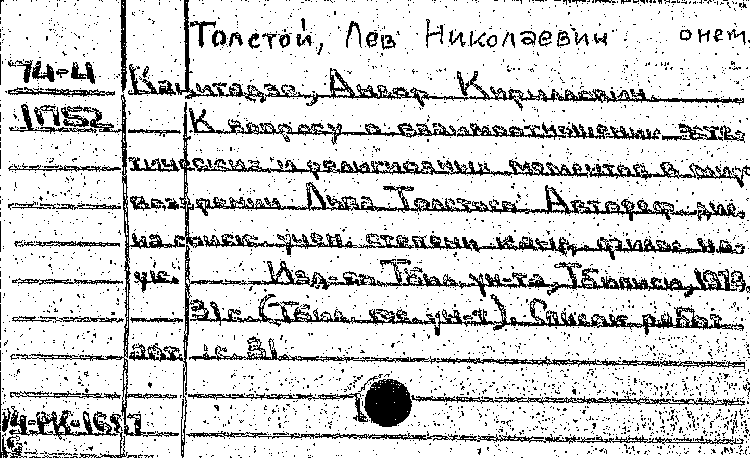 Толстой, Лев Николаевич о нем.
74-4 Анзор Кириллович.
11752 К вопросу о взаимоотношении эсте-
тических и религиозных моментов в миро-
воззрении Льва Толстого. Автореф. дис.
на соиск. учен. степени канд. филос. на-
ук. Изд-во Тбил. ун-та, Тбилиси, 1973.
31 с. (Тбил. гос. ун-т). Список работ
авт.: с. 31.